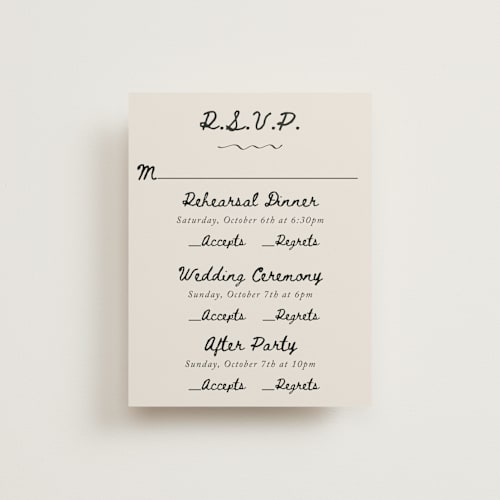 R.S.V.P.
M
Rehearsal Dinner
Saturday, October 6th at 6:30pm
__Accepts __Regrets
Wedding Ceremony
Sunday, October 7th at 6pm
__Accepts __Regrets
After Party
Sunday, October 7th at 10pm
__Accepts __Regrets